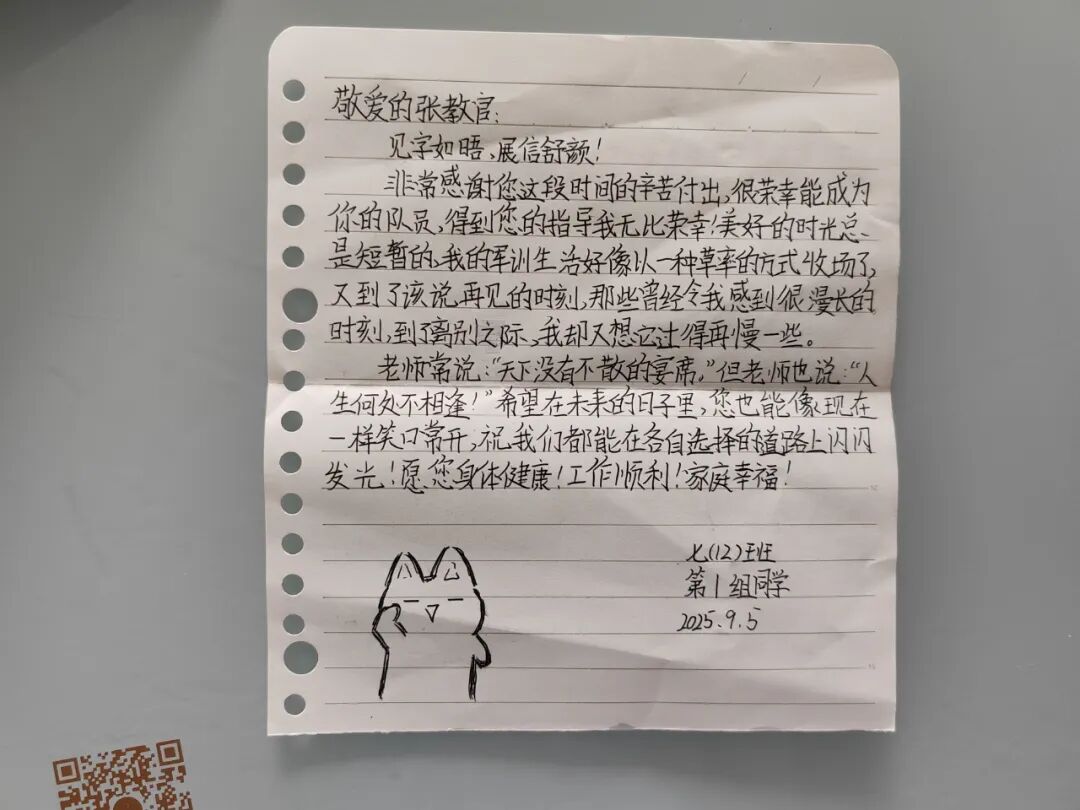 敬爱的张教官：
见字如晤，展信舒颜！
非常感谢您这段时间的辛苦付出，很荣幸能成为
你的队员，得到您的指导我无比荣幸！美好的时光总
是短暂的，我的军训生活好像以一种草率的方式收场了，
又到了该说再见的时刻，那些曾经令我感到很漫长的
时刻，到了离别之际，我却又想它过得再慢一些。
老师常说：“天下没有不散的宴席，”但老师也说：“人
生何处不相逢！”希望在未来的日子里，您也能像现在
一样笑口常开，祝我们都能在各自选择的道路上闪闪
发光！愿您身体健康！工作顺利！家庭幸福！
七(12)班
第1组同学
2025.9.5